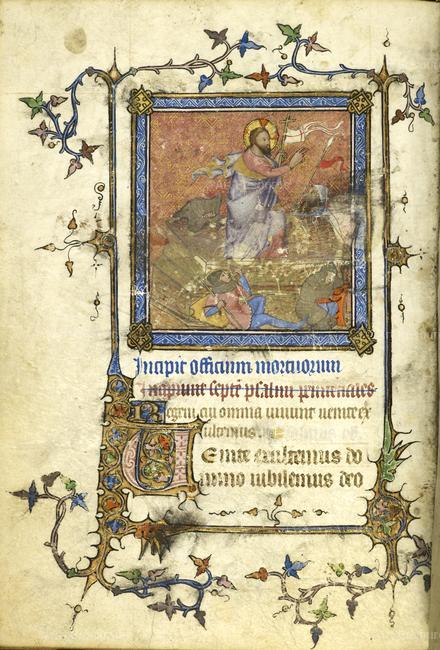 Incipit officium mortuorum
Incipiunt septē psalmi penitenciales
Regem cui omnia uiuunt uenite ex
ultemus
Enite exultemus do
mino iubilemus deo